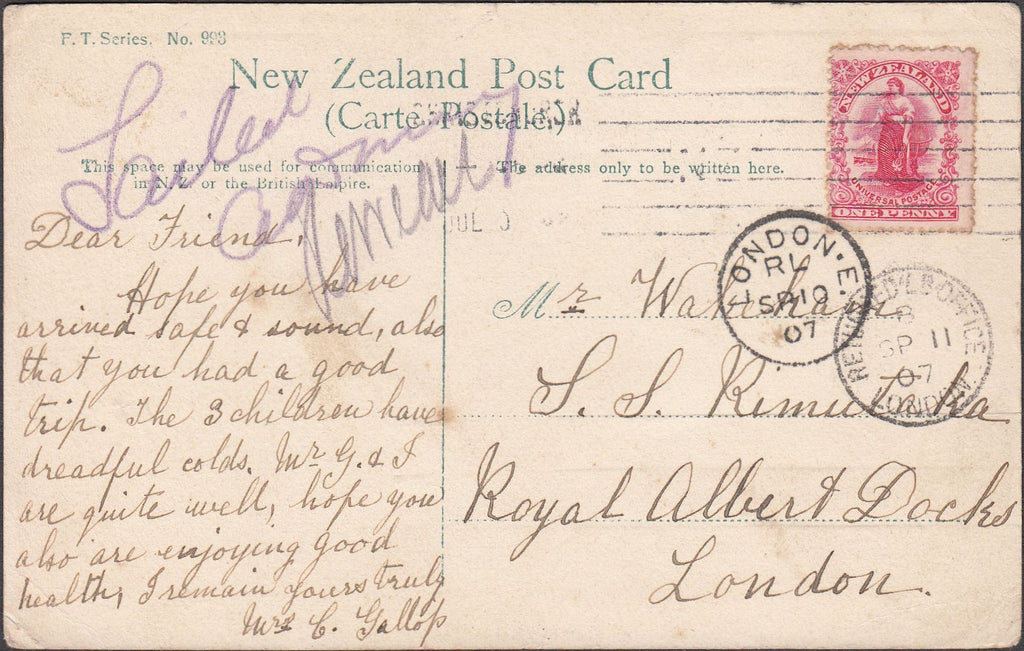 F. T. Series. No. 993
New Zealand Post Card
(Carte Postale.)
This space may be used for communication
in N.Z. or the British Empire.
The address only to be written here.
NEW ZEALAND
UNIVERSAL POSTAGE
ONE PENNY
JUL
LONDON. E.
RL
SP 10
07
RETURNED LR OFFICE
B
SP 11
07
LONDON
Dear Friend,
Hope you have
arrived safe & sound, also
that you had a good
trip. The 3 children have
dreadful colds. Mr G. & I
are quite well, hope you
also are enjoying good
health, I remain yours truly
Mrs C. Gallop
Mr Wakeham
S. S. Rimutaka
Royal Albert Docks
London.